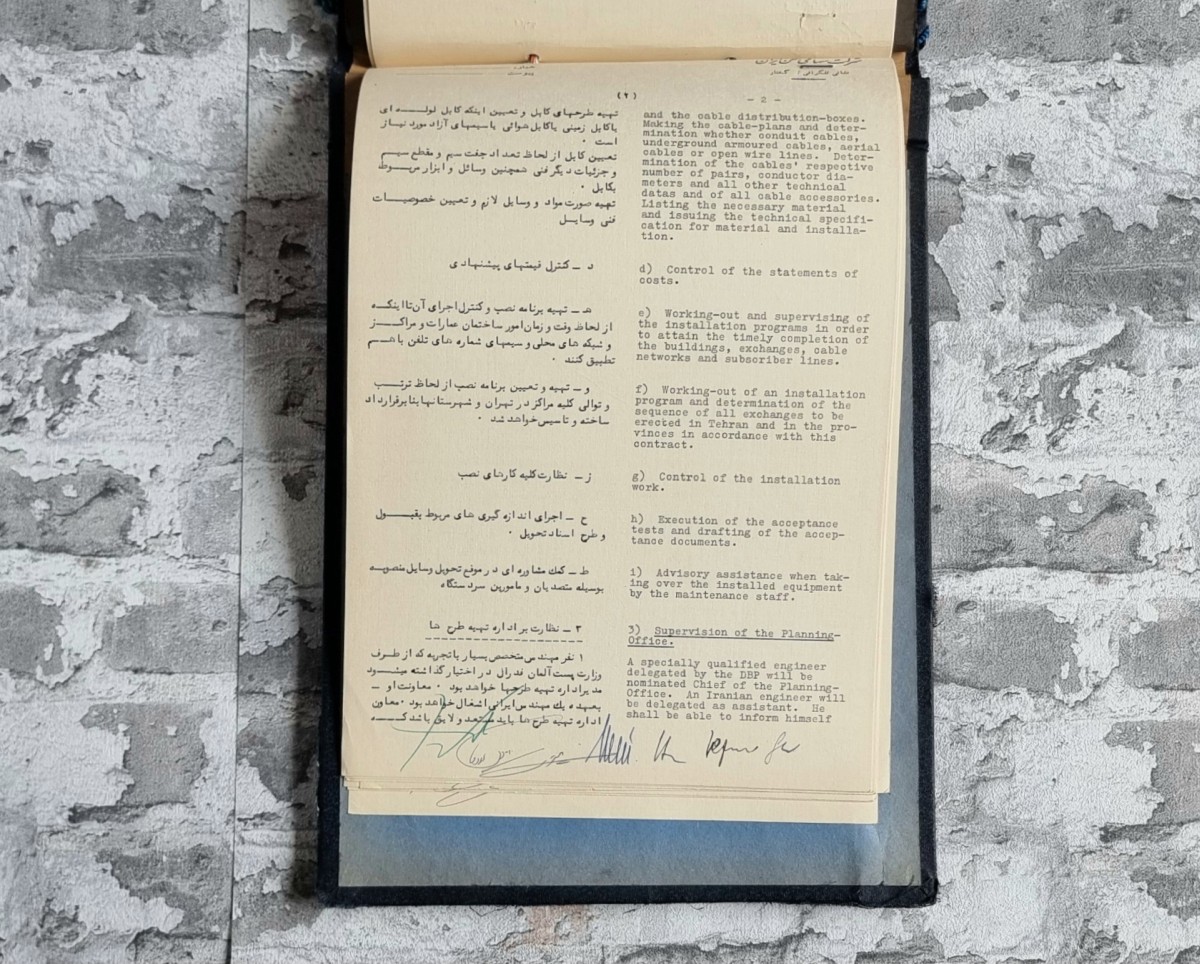 (۲)
تهیه طرحهای کابل و تعیین اینکه کابل لوله ای
یاکابل زمینی یاکابل هوائی یاسیمهای آزاد مورد نیاز
است .
تعیین کابل از لحاظ تعداد جفت سیم و مقطع سیم
و جزئیات دیگر فنی همچنین وسائل و ابزار مربوط
بکابل .
تهیه صورت مواد و وسایل لازم و تعیین خصوصیات
فنی وسایل
د ــ کنترل قیمتهای پیشنهادی
هـ ــ تهیه برنامه نصب و کنترل اجرای آن تا اینکه
از لحاظ وقت و زمان امور ساختمان عمارات و مراکز
و شبکه های محلی و سیمهای شماره های تلفن باهم
تطبیق کنند .
و ــ تهیه و تعیین برنامه نصب از لحاظ ترتب
و توالی کلیه مراکز در تهران و شهرستانها بنابر قرارداد
ساخته و تاسیس خواهد شد .
ز ــ نظارت کلیه کارهای نصب
ح ــ اجرای اندازه گیری های مربوط بقبول
و طرح اسناد تحویل .
ط ــ کمک مشاوره ای در موقع تحویل وسایل منصوبه
بوسیله متصدیان و مامورین سردستگاه
۳ ــ نظارت بر اداره تهیه طرح ها
۱ نفر مهندس متخصص بسیار با تجربه که از طرف
وزارت پست آلمان فدرال در اختیار گذاشته میشود
مدیر اداره تهیه طرحها خواهد بود . معاونت او ــ
بعهده یک مهندس ایرانی اشغال خواهد بود . معاون
اداره تهیه طرح ها باید مستعد و لایق باشد که
- 2 -
and the cable distribution-boxes.
Making the cable-plans and deter-
mination whether conduit cables,
underground armoured cables, aerial
cables or open wire lines. Deter-
mination of the cables' respective
number of pairs, conductor dia-
meters and all other technical
datas and of all cable accessories.
Listing the necessary material
and issuing the technical specifi-
cation for material and installa-
tion.
d) Control of the statements of
costs.
e) Working-out and supervising of
the installation programs in order
to attain the timely completion of
the buildings, exchanges, cable
networks and subscriber lines.
f) Working-out of an installation
program and determination of the
sequence of all exchanges to be
erected in Tehran and in the pro-
vinces in accordance with this
contract.
g) Control of the installation
work.
h) Execution of the acceptance
tests and drafting of the accep-
tance documents.
i) Advisory assistance when tak-
ing over the installed equipment
by the maintenance staff.
3) Supervision of the Planning-
Office.
A specially qualified engineer
delegated by the DBP will be
nominated Chief of the Planning-
Office. An Iranian engineer will
be delegated as assistant. He
shall be able to inform himself